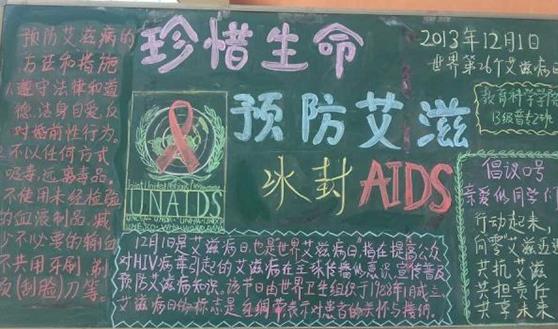 预防艾滋病的
方法和措施
1.遵守法律和道
德,洁身自爱,反
对婚前性行为。
2.不以任何方式
吸毒,远离毒品。
不使用未经检验
的血液制品,减
少不必要的输血
不共用牙刷,剃
须(刮脸)刀等。
珍惜生命
预防艾滋
冰封AIDS
UNAIDS
2013年12月1日
世界第26个艾滋病日
教育科学学院
13级普专2班
12月1日是艾滋病日,也是世界艾滋病日,指在提高公众
对HIV病毒引起的艾滋病在全球传播的意识,宣传普及
预防艾滋病知识。该节日由世界卫生组织于1988年1月成立
艾滋病日的标志是红绸带表示对患者的关怀与接纳。
倡议口号
亲爱的同学们
行动起来,
向零艾滋迈
共抗艾滋
共担责任
共享未来